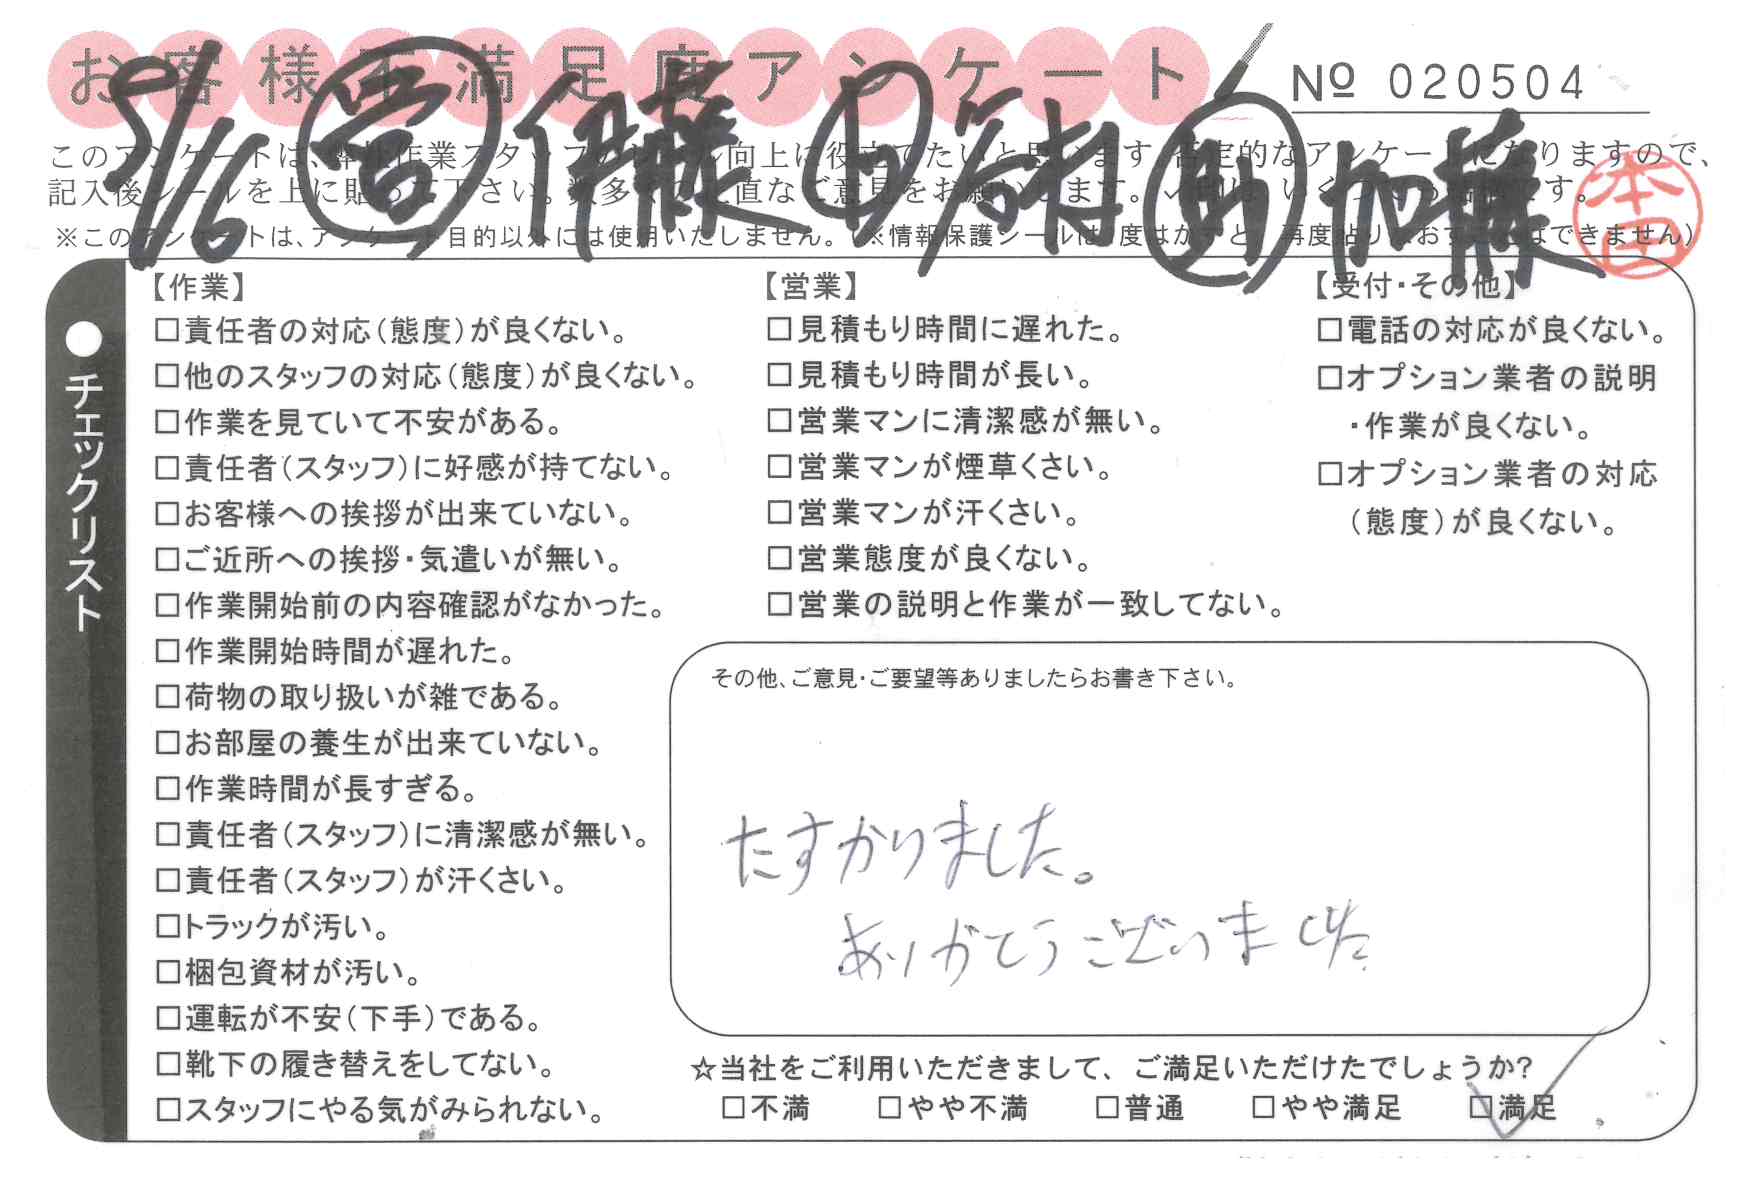 お客様不満足度アンケート
№ 020504
5/6 営 伊藤 中村 助 加藤
本田
このアンケートは、弊社作業スタッフの 向上に役立てたいと思います。否定的なアンケートになりますので、
記入後シールを上に貼って下さい。数多くの 直なご意見をお願いします。
※このアンケートは、アンケート目的以外には使用いたしません。(※情報保護シールは1度はがすと、再度貼りなおすことはできません)
●チェックリスト
【作業】
□責任者の対応(態度)が良くない。
□他のスタッフの対応(態度)が良くない。
□作業を見ていて不安がある。
□責任者(スタッフ)に好感が持てない。
□お客様への挨拶が出来ていない。
□ご近所への挨拶・気遣いが無い。
□作業開始前の内容確認がなかった。
□作業開始時間が遅れた。
□荷物の取り扱いが雑である。
□お部屋の養生が出来ていない。
□作業時間が長すぎる。
□責任者(スタッフ)に清潔感が無い。
□責任者(スタッフ)が汗くさい。
□トラックが汚い。
□梱包資材が汚い。
□運転が不安(下手)である。
□靴下の履き替えをしてない。
□スタッフにやる気がみられない。
【営業】
□見積もり時間に遅れた。
□見積もり時間が長い。
□営業マンに清潔感が無い。
□営業マンが煙草くさい。
□営業マンが汗くさい。
□営業態度が良くない。
□営業の説明と作業が一致してない。
【受付・その他】
□電話の対応が良くない。
□オプション業者の説明
・作業が良くない。
□オプション業者の対応
(態度)が良くない。
その他、ご意見・ご要望等ありましたらお書き下さい。
たすかりました。
ありがとうございました
☆当社をご利用いただきまして、ご満足いただけたでしょうか?
□不満 □やや不満 □普通 □やや満足 □満足